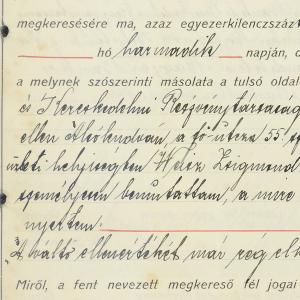 megkeresésére ma, azaz egyezerkilenczszáz
hó harmadik napján, d
a melynek szószerinti másolata a tulsó oldal
és Kereskedelmi Részvénytársaság
ellen Alsókubin, a fő utcza 55 sz
üzleti helyiségében Weisz Zsigmond
személyesen bemutattam, a mire
nyertem:
"A váltó ellenértékét már rég el
Miről, a fent nevezett megkereső fél jogai